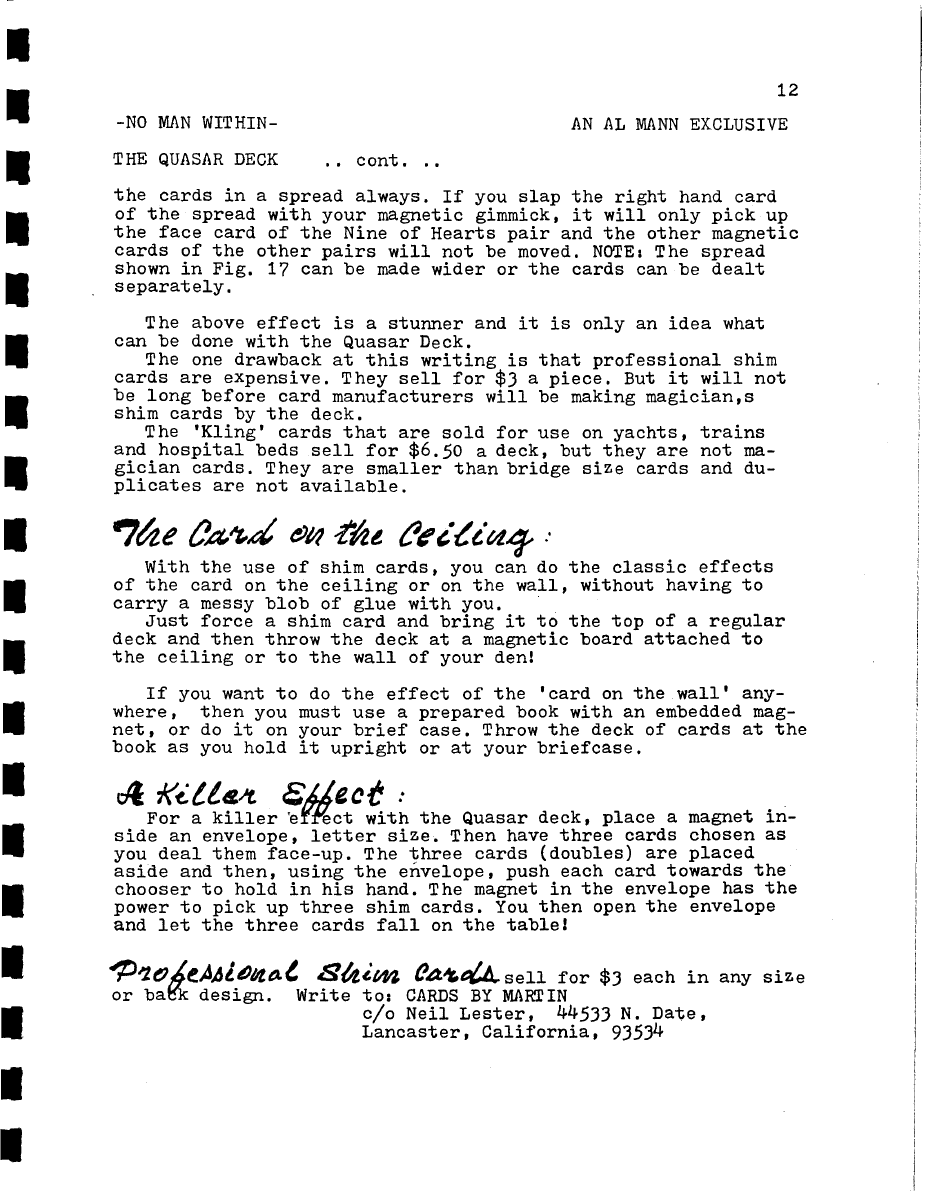 12
-NO MAN WITHIN- AN AL MANN EXCLUSIVE
THE QUASAR DECK .. cont. ..
the cards in a spread always. If you slap the right hand card
of the spread with your magnetic gimmick, it will only pick up
the face card of the Nine of Hearts pair and the other magnetic
cards of the other pairs will not be moved. NOTE: The spread
shown in Fig. 17 can be made wider or the cards can be dealt
separately.
The above effect is a stunner and it is only an idea what
can be done with the Quasar Deck.
The one drawback at this writing is that professional shim
cards are expensive. They sell for $3 a piece. But it will not
be long before card manufacturers will be making magician,s
shim cards by the deck.
The 'Kling' cards that are sold for use on yachts, trains
and hospital beds sell for $6.50 a deck, but they are not ma-
gician cards. They are smaller than bridge size cards and du-
plicates are not available.
The Card on the Ceiling :
With the use of shim cards, you can do the classic effects
of the card on the ceiling or on the wall, without having to
carry a messy blob of glue with you.
Just force a shim card and bring it to the top of a regular
deck and then throw the deck at a magnetic board attached to
the ceiling or to the wall of your den!
If you want to do the effect of the 'card on the wall' any-
where, then you must use a prepared book with an embedded mag-
net, or do it on your brief case. Throw the deck of cards at the
book as you hold it upright or at your briefcase.
A Killer Effect :
For a killer effect with the Quasar deck, place a magnet in-
side an envelope, letter size. Then have three cards chosen as
you deal them face-up. The three cards (doubles) are placed
aside and then, using the envelope, push each card towards the
chooser to hold in his hand. The magnet in the envelope has the
power to pick up three shim cards. You then open the envelope
and let the three cards fall on the table!
Professional Shim Cards sell for $3 each in any size
or back design. Write to: CARDS BY MARTIN
c/o Neil Lester, 44533 N. Date,
Lancaster, California, 93534